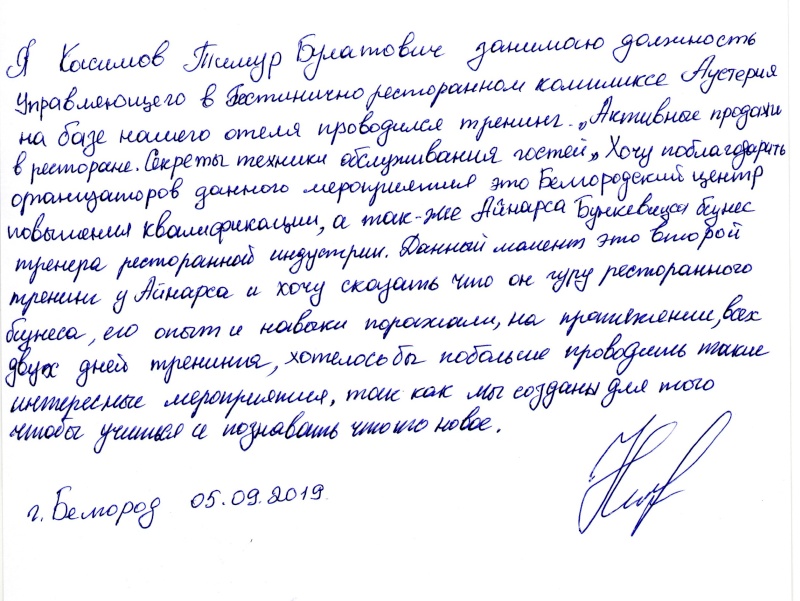 Я Касимов Тимур Булатович занимаю должность
Управляющего в Гостинично ресторанном компликсе Аустерия
на базе нашего отеля проводился тренинг. „Активные продажи
в ресторане. Секреты техники обслуживания гостей„ Хочу поблагодарить
организаторов данного мероприятия это Белгородский центр
повышения квалификации, а так-же Айнарса Бункевица бизнес
тренера ресторанной индустрии. Данный момент это второй
тренинг у Айнарса и хочу сказать что он гуру ресторанного
бизнеса, его опыт и навыки поражали, на протяжении, всех
двух дней тренинга, хотелось бы побольше проводить такие
интересные мероприятия, так как мы созданы для того
чтобы учиться и познавать что то новое.
г. Белгород 05.09.2019